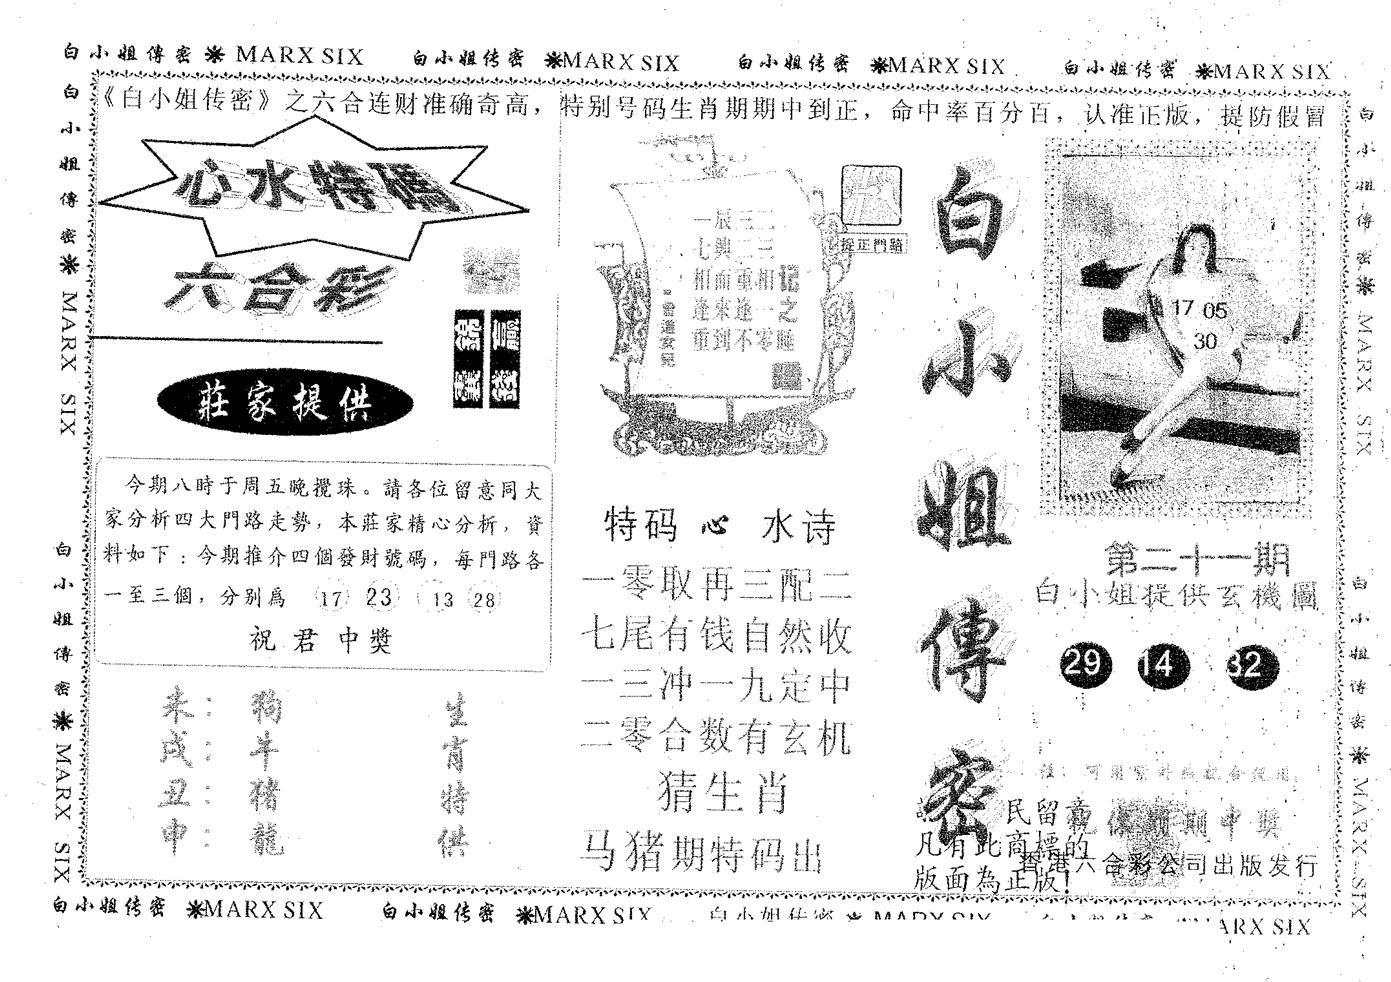 白小姐傳密 ❋ MARX SIX 白小姐传密 ❋MARX SIX 白小姐传密 ❋MARX SIX 白小姐传密 ❋MARX SIX
《白小姐传密》之六合连财准确奇高，特别号码生肖期期中到正，命中率百分百，认准正版，提防假冒
白小姐傳密 ❋ MARX SIX
白小姐傳密 ❋ MARX SIX
心水特碼
六合彩
莊家提供
今期八時于周五晚攪珠。請各位留意同大
家分析四大門路走勢，本莊家精心分析，資
料如下：今期推介四個發財號碼，每門路各
一至三個，分别爲 17 23 13 28
祝君中獎
未：狗 生
戌：牛 肖
丑：猪 特
申：龍 供
一辰三二
七與二三
相面重相记
逢來逢一之
重到不零睡
捉正門路
特码 心 水诗
一零取再三配二
七尾有钱自然收
一三冲一九定中
二零合数有玄机
猜生肖
马猪期特码出
白小姐傳密
民留意
凡有此商標的
版面為正版!
17 05
30
第二十一期
白小姐提供玄機圖
29 14 32
祝你期期中獎
香港六合彩公司出版发行
白小姐傳密 ❋ MARX SIX
白小姐传密 ❋ MARX SIX
白小姐传密 ❋MARX SIX 白小姐传密 ❋MARX SIX 白小姐传密 ❋ MARX SIX ARX SIX